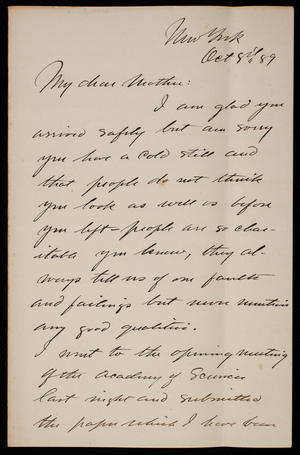 New York
Oct 8th/89
My dear Mother:
I am glad you
arrived safely but am sorry
you have a cold still and
that people do not think
you look as well as before
you left – people are so char-
itable you know, they al-
ways tell us of our faults
and failings but never mention
any good qualities.
I went to the opening meeting
of the Academy of Sciences
last night and submitted
the paper which I have been